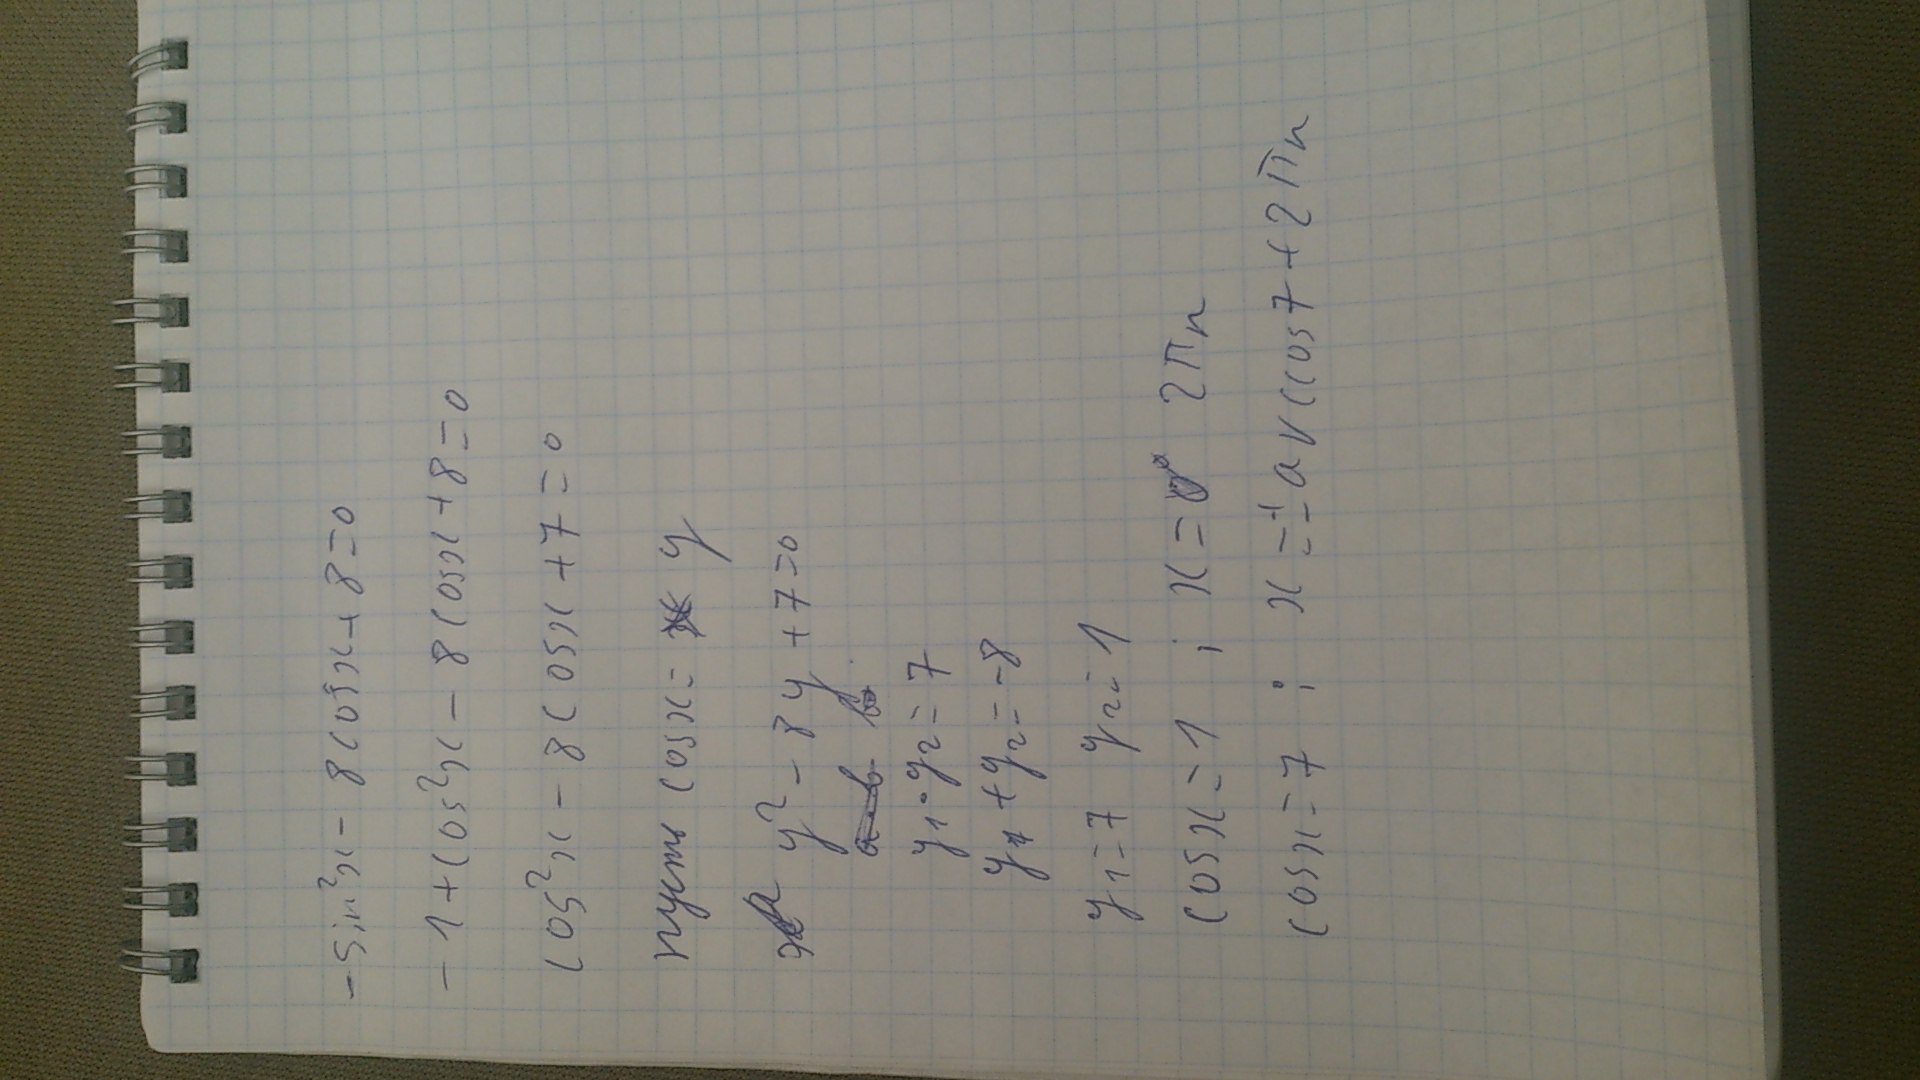 -sin²x - 8cosx + 8 = 0
-1 + cos²x - 8cosx + 8 = 0
cos²x - 8cosx + 7 = 0
пусть cosx = y
y² - 8y + 7 = 0
y₁ · y₂ = 7
y₁ + y₂ = -8
y₁ = 7 y₂ = 1
cosx = 1 ; x = 2πn
cosx = 7 ; x = ± arccos7 + 2πn